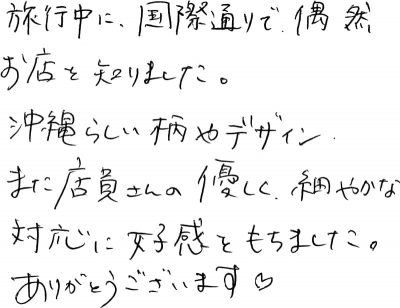 旅行中に、国際通りで、偶然
お店を知りました。
沖縄らしい柄やデザイン、
また店員さんの優しく、細やかな
対応に好感をもちました。
ありがとうございます♡